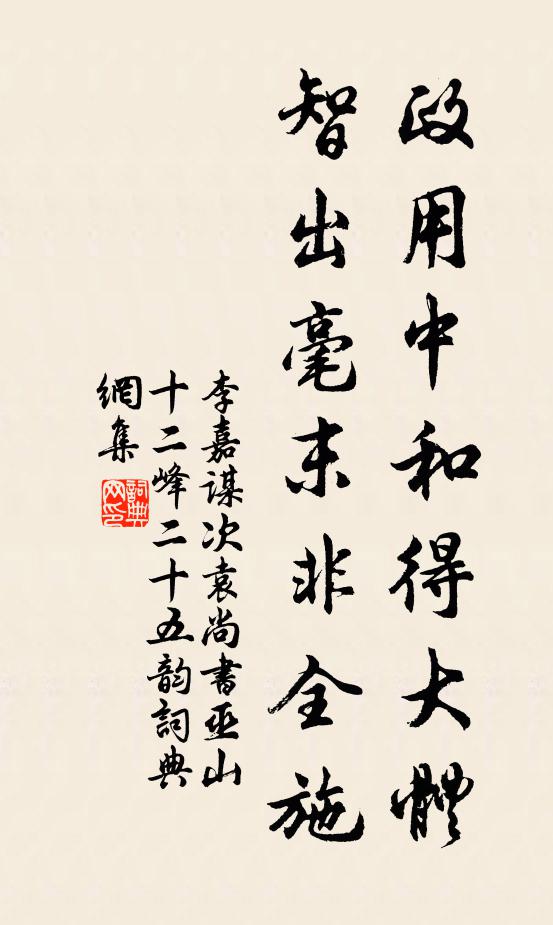 政用中和得大體
智出毫末非全施
李嘉謀次袁尚書巫山
十二峰二十五韵詞典
網集
詞典
网印